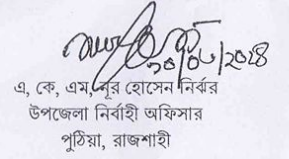 ২০/০৮/২০২৪
এ, কে, এম, নূর হোসেন নির্ঝর
উপজেলা নির্বাহী অফিসার
পুঠিয়া, রাজশাহী